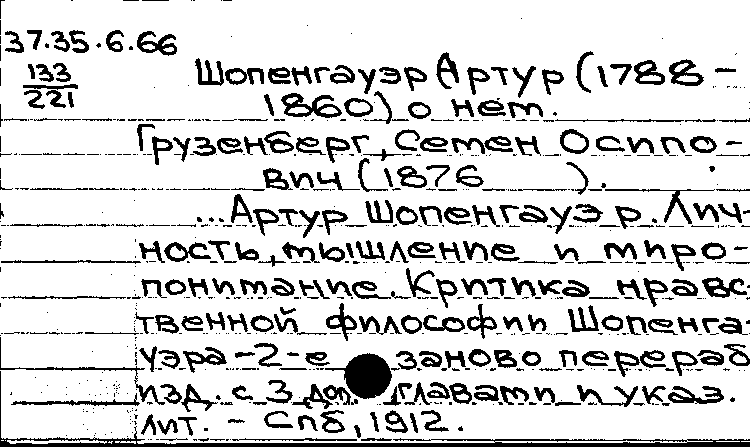 37.35.6.66
133
221
Шопенгауэр Артур (1788-
1860) о нем.
Грузенберг, Семен Осипо-
вич (1876 ).
...Артур Шопенгауэр. Лич-
ность, мышление и миро-
понимание. Критика нравс
твенной философии Шопенга-
уэра-2-е заново перераб
изд. с 3 доп. главами и указ.
лит. - Спб, 1912.